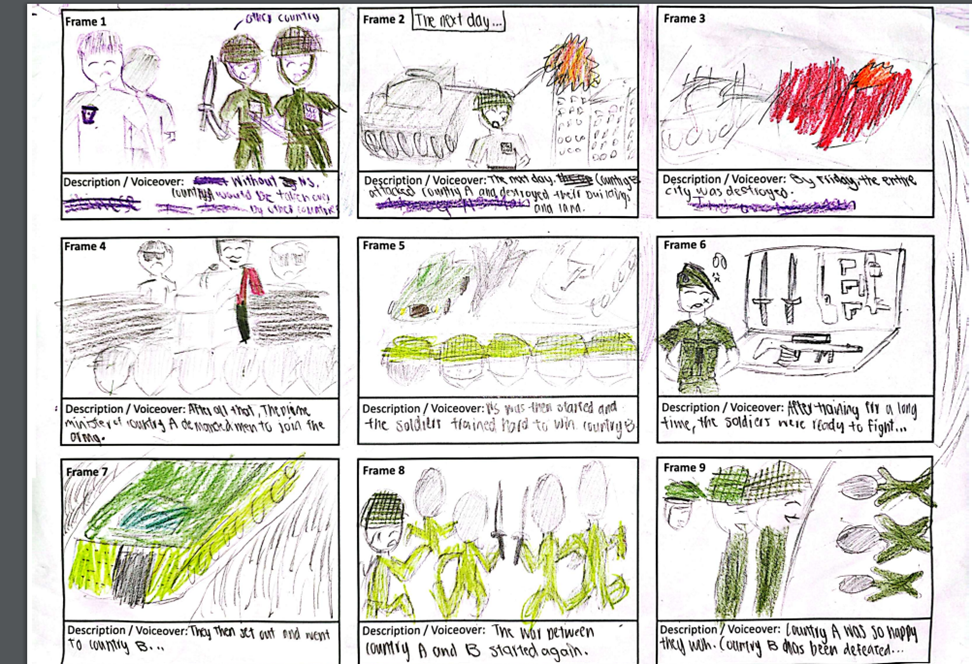 Frame 1
other country
Description / Voiceover: Without NS,
country A would be taken over
by other countries
Frame 2
The next day...
Description / Voiceover: The next day, Country B
attacked country A and destroyed their buildings
and land.
Frame 3
Description / Voiceover: By Friday, the entire
city was destroyed.
Frame 4
Description / Voiceover: After all that, The prime
minister of country A demanded men to join the
army.
Frame 5
Description / Voiceover: NS was then started and
the soldiers trained hard to win country B.
Frame 6
Description / Voiceover: After training for a long
time, the soldiers were ready to fight...
Frame 7
Description / Voiceover: They then set out and went
to country B...
Frame 8
Description / Voiceover: The war between
country A and B started again.
Frame 9
Description / Voiceover: Country A was so happy
they won. Country B has been defeated...